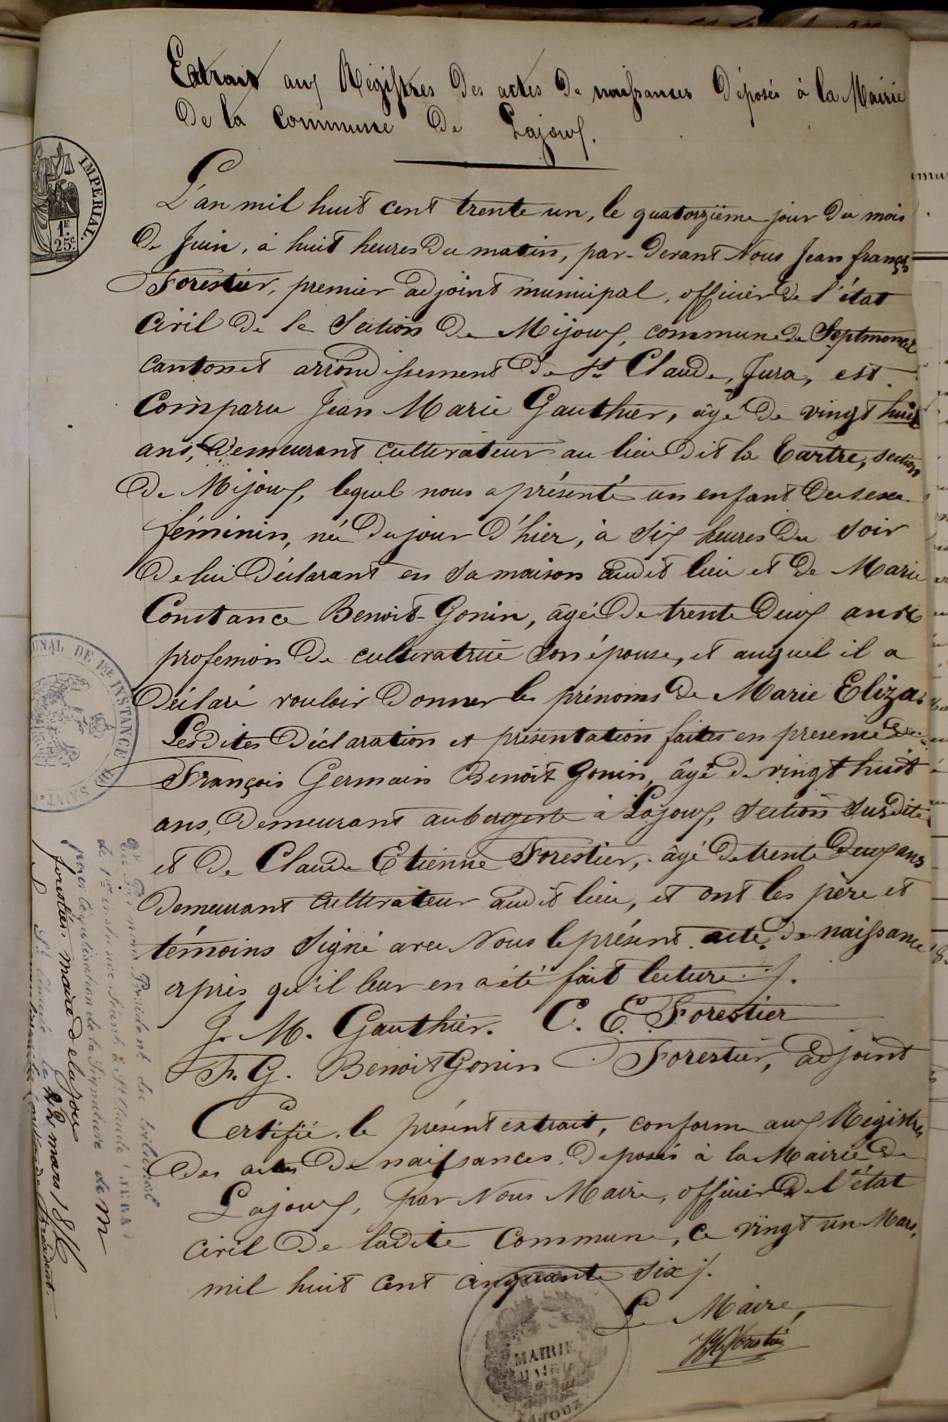 Extrait aux Régistres des actes de naissances déposés à la Mairie
de la Commune de Lajoux.
L'an mil huit cent trente un, le quatorzième jour du mois
de Juin, à huit heures du matin, par-devant Nous Jean françois
Forestier, premier adjoint municipal, officier de l'état
Civil de la Section de Mijoux, commune de Septmoncel
canton et arrondissement de St Claude, Jura, est
Comparu Jean Marie Gauthier, âgé de vingt huit
ans, demeurant cultivateur au lieu dit la Tartre, section
de Mijoux, lequel nous a présenté un enfant du sexe
féminin, né du jour d'hier, à Six heures du soir
de lui déclarant en sa maison audit lieu et de Marie
Constance Benoit-Gonin, âgée de trente deux ans
profession de cultivatrice son épouse, et auquel il a
déclaré vouloir donner les prénoms de Marie Eliza.
Lesdites déclaration et présentation faites en presence de
François Germain Benoit Gonin, âgé de vingt huit
ans, demeurant aubergiste à Lajoux, section susdite
et de Claude Etienne Forestier, âgé de trente deux ans
demeurant cultivateur audit lieu, et ont les père et
témoins signé avec Nous le présent acte de naissance
après qu'il leur en a été fait lecture ./.
J. M. Gauthier. C. E. Forestier
F. G. Benoit Gonin Forestier, adjoint
Certifié le présent extrait, conforme aux Registres
des actes de naissances déposés à la Mairie de
Lajoux, par Nous Maire, officier de l'état
civil de ladite Commune, ce vingt un Mars,
mil huit cent cinquante six ./.
Le Maire,
IMPERIAL.
1F.
25c.
TRIBUNAL DE 1ère INSTANCE DE SAINT
Vu Par nous Président du tribunal
de 1ère instance séant à St Claude (JURA)
pour légalisation de la Signature de M
forestier, maire de lajoux
St Claude le 22 mars 1856
MAIRIE
LAJOUX